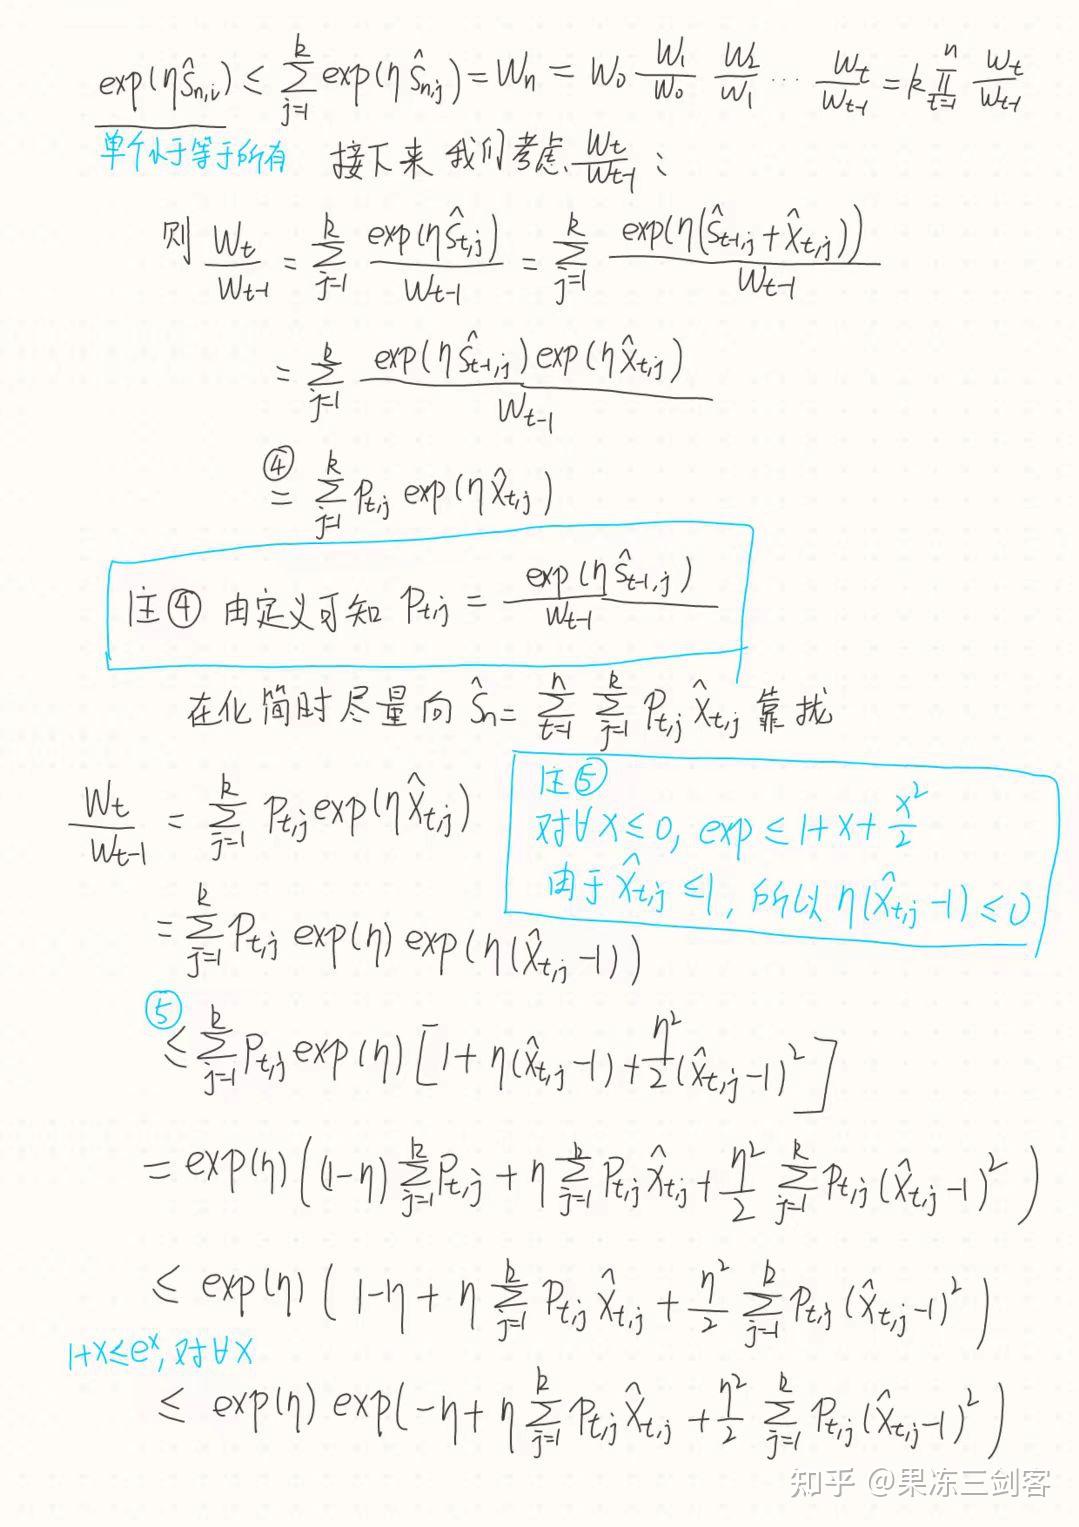 exp(ηŜn,i) ≤ Σ_{j=1}^{k} exp(ηŜn,j) = Wn = W0 W1/W0 W2/W1 ... Wt/Wt-1 = k Π_{t=1}^{n} Wt/Wt-1
单个小于等于所有 接下来我们考虑 Wt/Wt-1:
则 Wt/Wt-1 = Σ_{j=1}^{k} exp(ηŜt,j)/Wt-1 = Σ_{j=1}^{k} exp(η(Ŝt-1,j + X̂t,j))/Wt-1
= Σ_{j=1}^{k} exp(ηŜt-1,j) exp(ηX̂t,j)/Wt-1
④ = Σ_{j=1}^{k} Pt,j exp(ηX̂t,j)
注④ 由定义可知 Pt,j = exp(ηŜt-1,j)/Wt-1
在化简时尽量向 Ŝn = Σ_{t=1}^{n} Σ_{j=1}^{k} Pt,j X̂t,j 靠拢
Wt/Wt-1 = Σ_{j=1}^{k} Pt,j exp(ηX̂t,j)
注⑤
对∀x≤0, exp ≤ 1+x+x²/2
由于 X̂t,j ≤1, 所以 η(X̂t,j -1) ≤ 0
= Σ_{j=1}^{k} Pt,j exp(η) exp(η(X̂t,j -1))
⑤ ≤ Σ_{j=1}^{k} Pt,j exp(η) [1 + η(X̂t,j -1) + η²/2 (X̂t,j -1)²]
= exp(η) ((1-η) Σ_{j=1}^{k} Pt,j + η Σ_{j=1}^{k} Pt,j X̂t,j + η²/2 Σ_{j=1}^{k} Pt,j (X̂t,j -1)²)
≤ exp(η) (1-η + η Σ_{j=1}^{k} Pt,j X̂t,j + η²/2 Σ_{j=1}^{k} Pt,j (X̂t,j -1)²)
1+x≤eˣ, 对∀x
≤ exp(η) exp(-η + η Σ_{j=1}^{k} Pt,j X̂t,j + η²/2 Σ_{j=1}^{k} Pt,j (X̂t,j -1)²)
知乎 @果冻三剑客